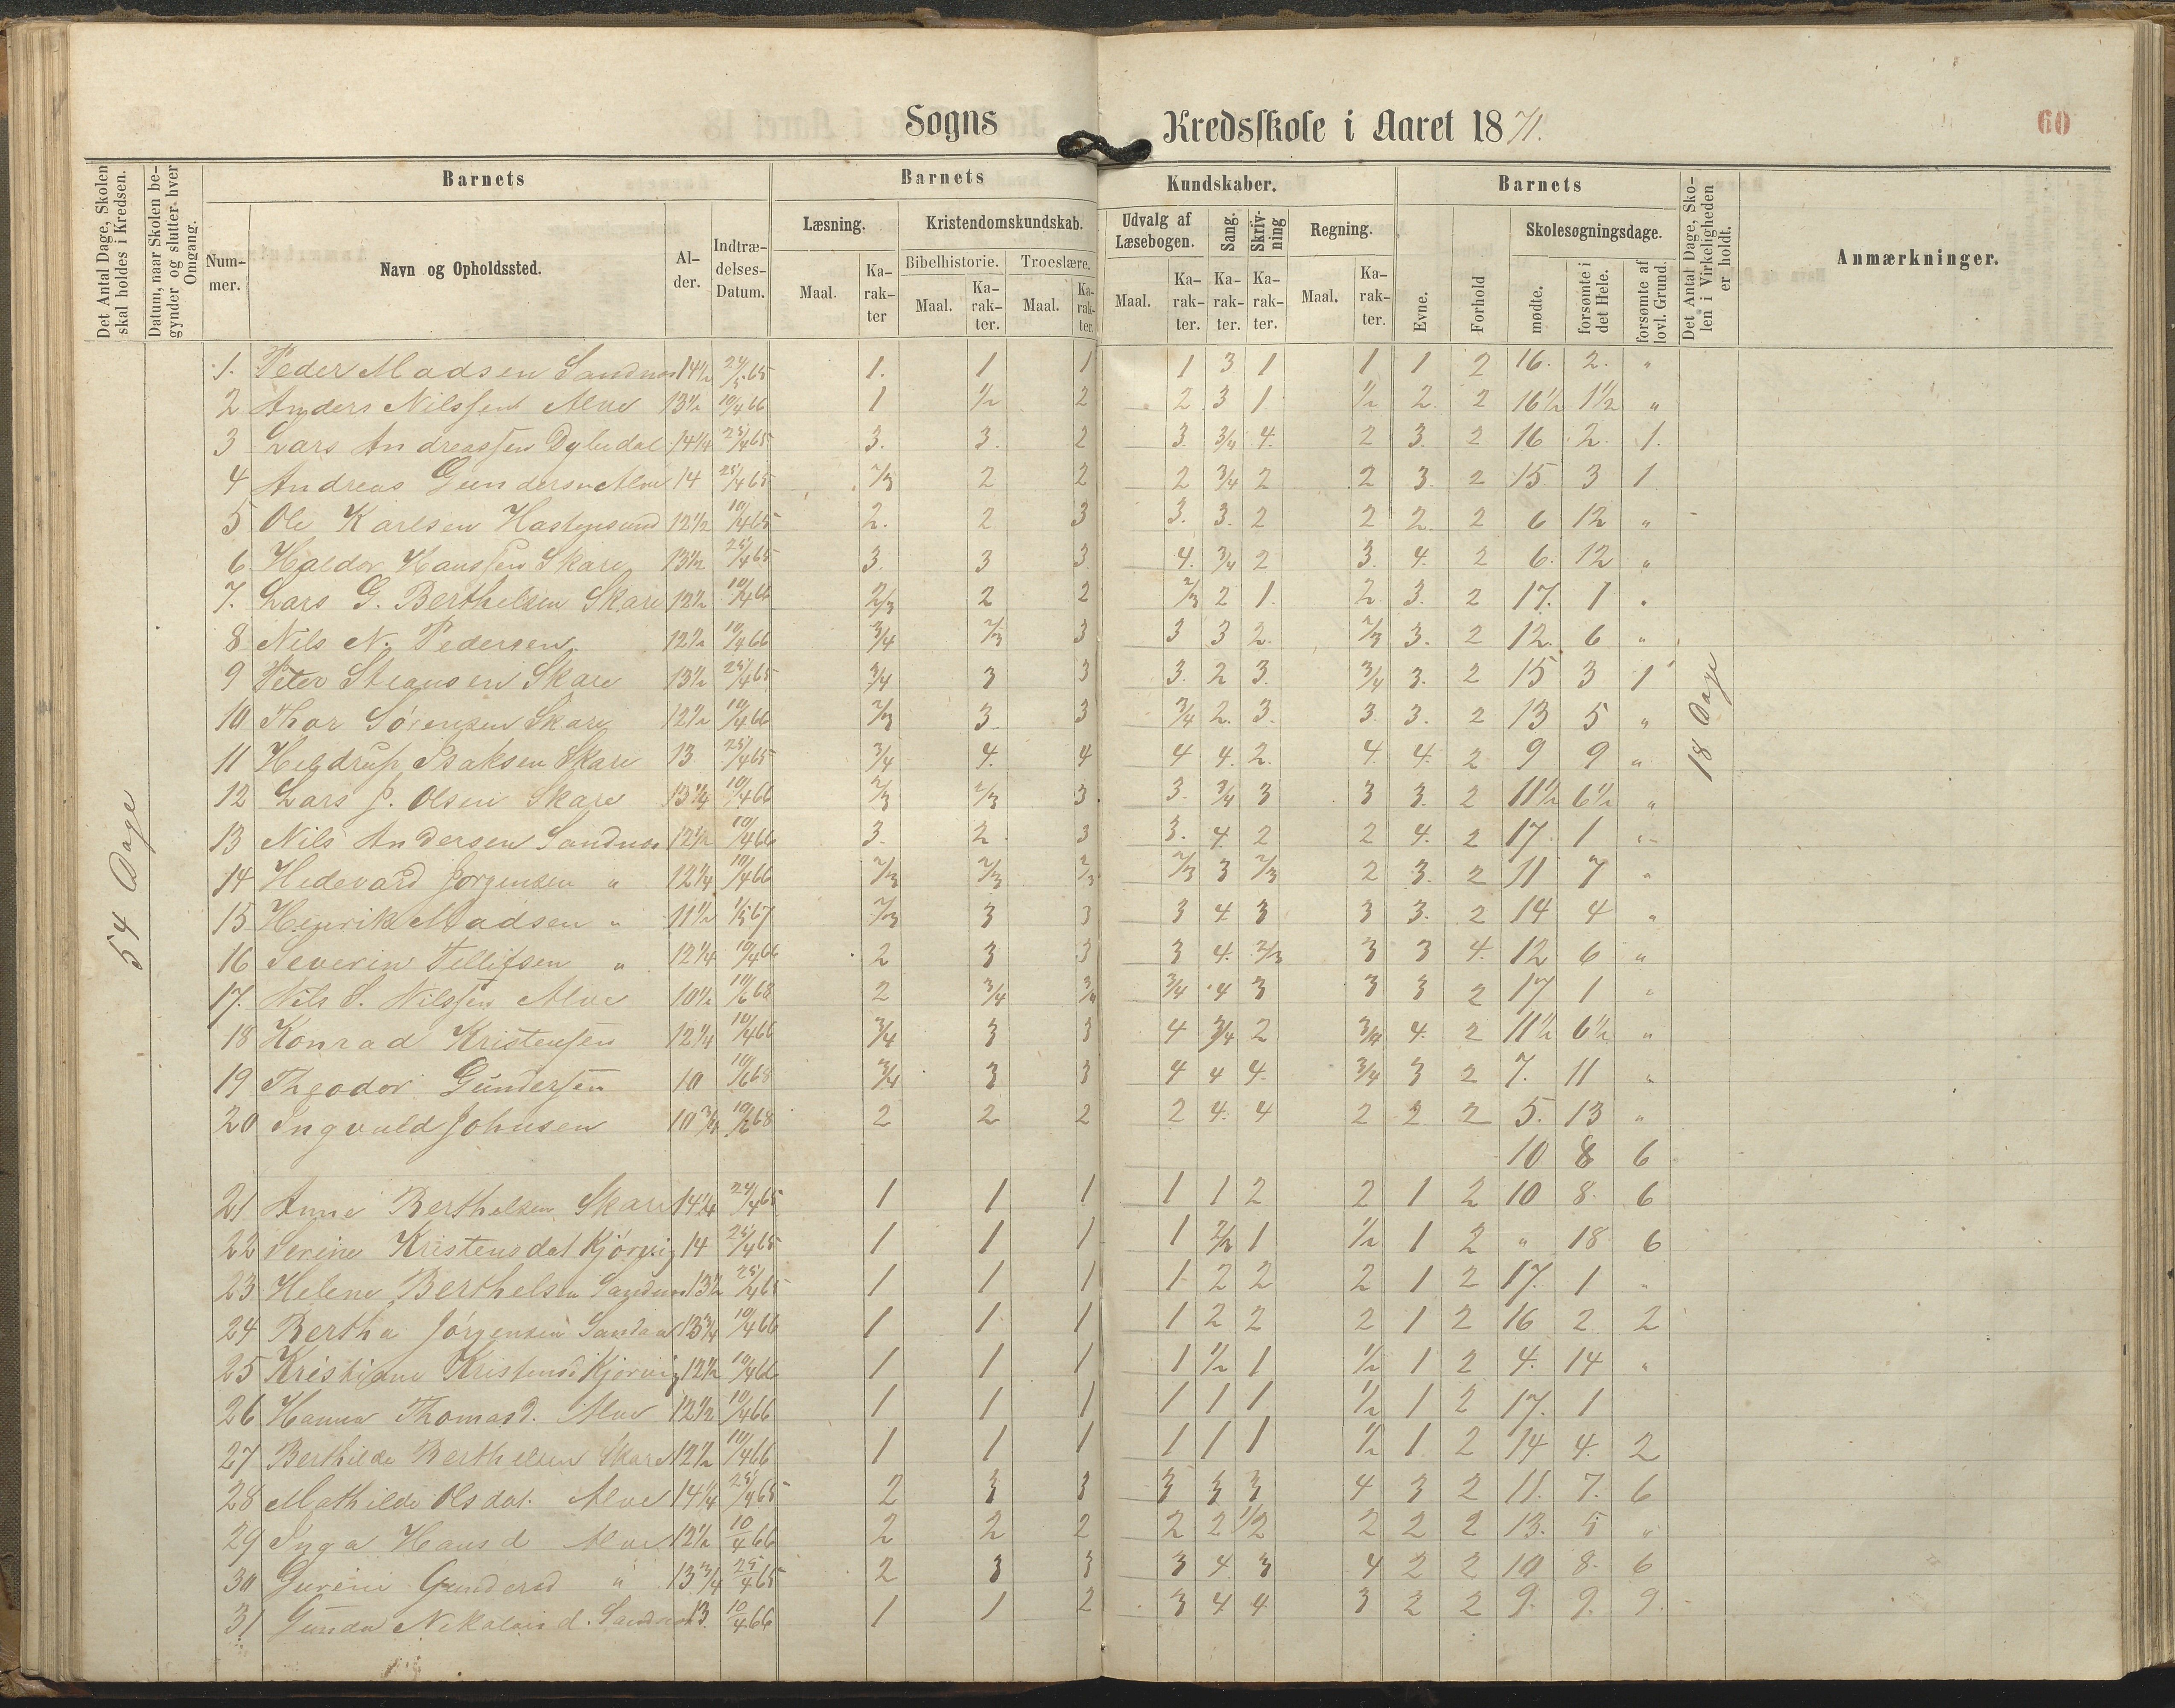 Sogns Kredsskole i Aaret 1871.
60
Det Antal Dage, Skolen skal holdes i Kredsen.
Datum, naar Skolen begynder og slutter hver Omgang.
Barnets
Nummer.
Navn og Opholdssted.
Alder.
Indtrædelses-Datum.
Barnets Kundskaber.
Læsning.
Maal.
Karakter
Kristendomskundskab.
Bibelhistorie.
Maal.
Karakter.
Troeslære.
Maal.
Karakter.
Udvalg af Læsebogen.
Maal.
Karakter.
Sang.
Karakter.
Skrivning
Karakter.
Regning.
Maal.
Karakter.
Barnets
Evne.
Forhold
Skolesøgningsdage.
mødte.
forsømte i det Hele.
forsømte af lovl. Grund.
Det Antal Dage, Skolen i Virkeligheden er holdt.
Anmærkninger.
54 Dage
18 Dage
1. Peder Madsen Sandnes 14½ 24/5 65 1. 1 1 1 3 1 1 1 2 16. 2. "
2 Anders Nilssen Alve 13½ 10/4 66 1 ½ 2 2 3 1 ½ 2 2 16½ 1½ "
3 Lars Andreassen 14¼ 25/4 65 3. 3. 2 3. 3/4 4. 2 3. 2 16 2. 1.
4 Andreas Gundersen Alve 14 25/4 65 2/3 2 2 2 3/4 2 2 3. 2 15 3 1
5 Ole Karlsen Hastensund 12½ 10/4 65 2. 2 3 3. 3. 2 2 2. 2 6 12 "
6 Haldor Hanssen Skare 13½ 25/4 65 3. 3 3 4. 3/4 2 3. 4. 2 6. 12 "
7. Lars G. Berthelsen Skare 12½ 10/4 66 2/3 2 2 2/3 2 1. 2 3. 2 17. 1 "
8 Nils N. Pedersen 12½ 10/4 66 3/4 2/3 3 3 3 2. 2/3 3. 2 12. 6 "
9 Peter Skare 13½ 25/4 65 3/4 3 3 3. 2 3. 3/4 3. 2 15 3 1
10 Thor Sörensen Skare 12½ 10/4 66 2/3 3. 3 3/4 2. 3. 3. 3. 2 13 5 "
11 Isaksen Skare 13 25/4 65 3/4 4. 4 4 4. 2. 4. 4. 2 9 9 "
12 Lars J. Olsen Skare 13¼ 10/4 66 2/3 2/3 3. 3. 3/4 3 3 3. 2 11½ 6½ "
13 Nils Andersen Sandnes 12½ 10/4 66 3. 2. 3 3. 4. 2 2 4. 2 17. 1 "
14 Hedevard Jorgensen " 12¼ 10/4 66 2/3 2/3 2/3 2/3 3 2/3 2 3. 2 11 7 "
15 Henrik Madsen " 11½ 1/5 67 2/3 3 3 3 4 3 3 3. 2 14 4 "
16 Severin Tellifsen " 12¼ 10/4 66 2 3 3 3 4. 2/3 3 3 4. 12 6 "
17. Nils S. Nilssen Alve 10½ 10/6 68 2 3/4 3/4 3/4 4 3 3 3 2 17 1 "
18 Konrad Kristensen 12¼ 10/4 66 3/4 3 3 4 3/4 2 3/4 4. 2 11½ 6½ "
19 Theodor Gundersen 10 10/6 68 3/4 3 3 4 4 4. 3/4 3 2 7. 11 "
20 Ingvald Johnsen 10¾ 10/6 68 2 2 2 2 4. 4 2 2 2 5. 13 "
10 8 6
21 Anne Berthelsen Skare 14¼ 24/4 65 1 1 1 1 1 2 2 1 2 10 8. 6
22 Serine Kristensdat Kjörvig 14 25/4 65 1 1 1 1 2/3 1 ½ 1 2 " 18 6
23 Helene Berthelsen Sandnes 13½ 25/4 65 1 1 1 1 2 2 2 1 2 17. 1 "
24 Bertha Jörgensen 13¾ 10/4 66 1 1 1 1 2 2 2 1 2 16 2 2
25 Kristiane Kristensd Kjörvig 12½ 10/4 66 1 1 1 1 ½ 1 ½ 1 2 4. 14 "
26 Hanna Thomasd. Alve 12½ 10/4 66 1 1 1 1 1 1 ½ 1 2 17. 1
27 Berthilde Berthelsen Skare 12½ 10/4 66 1 1 1 1 1 1 ½ 1 2 14 4. 2
28 Mathilde Olsdat. Alve 14¼ 25/4 65 2 3 3 3 3 3 4 3 2 11. 7. 6
29 Inga Hansd Alve 12½ 10/4 66 2 2 2 2 2 ½ 2 2 2 13. 5 "
30 Gurine Gundersd " 13¾ 25/4 65 2 3 3 3 4 3 4 2 2 10 8. 6
31 Gunda Nikolaisd. Sandnes 13. 10/4 66 1 1 2 3 4 4 3 2 2 9. 9. 9.